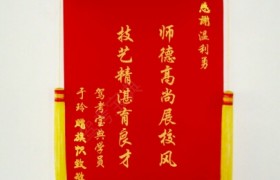 感谢温利勇
师德高尚展校风
技艺精湛育良才
驾考宝典学员
于玲